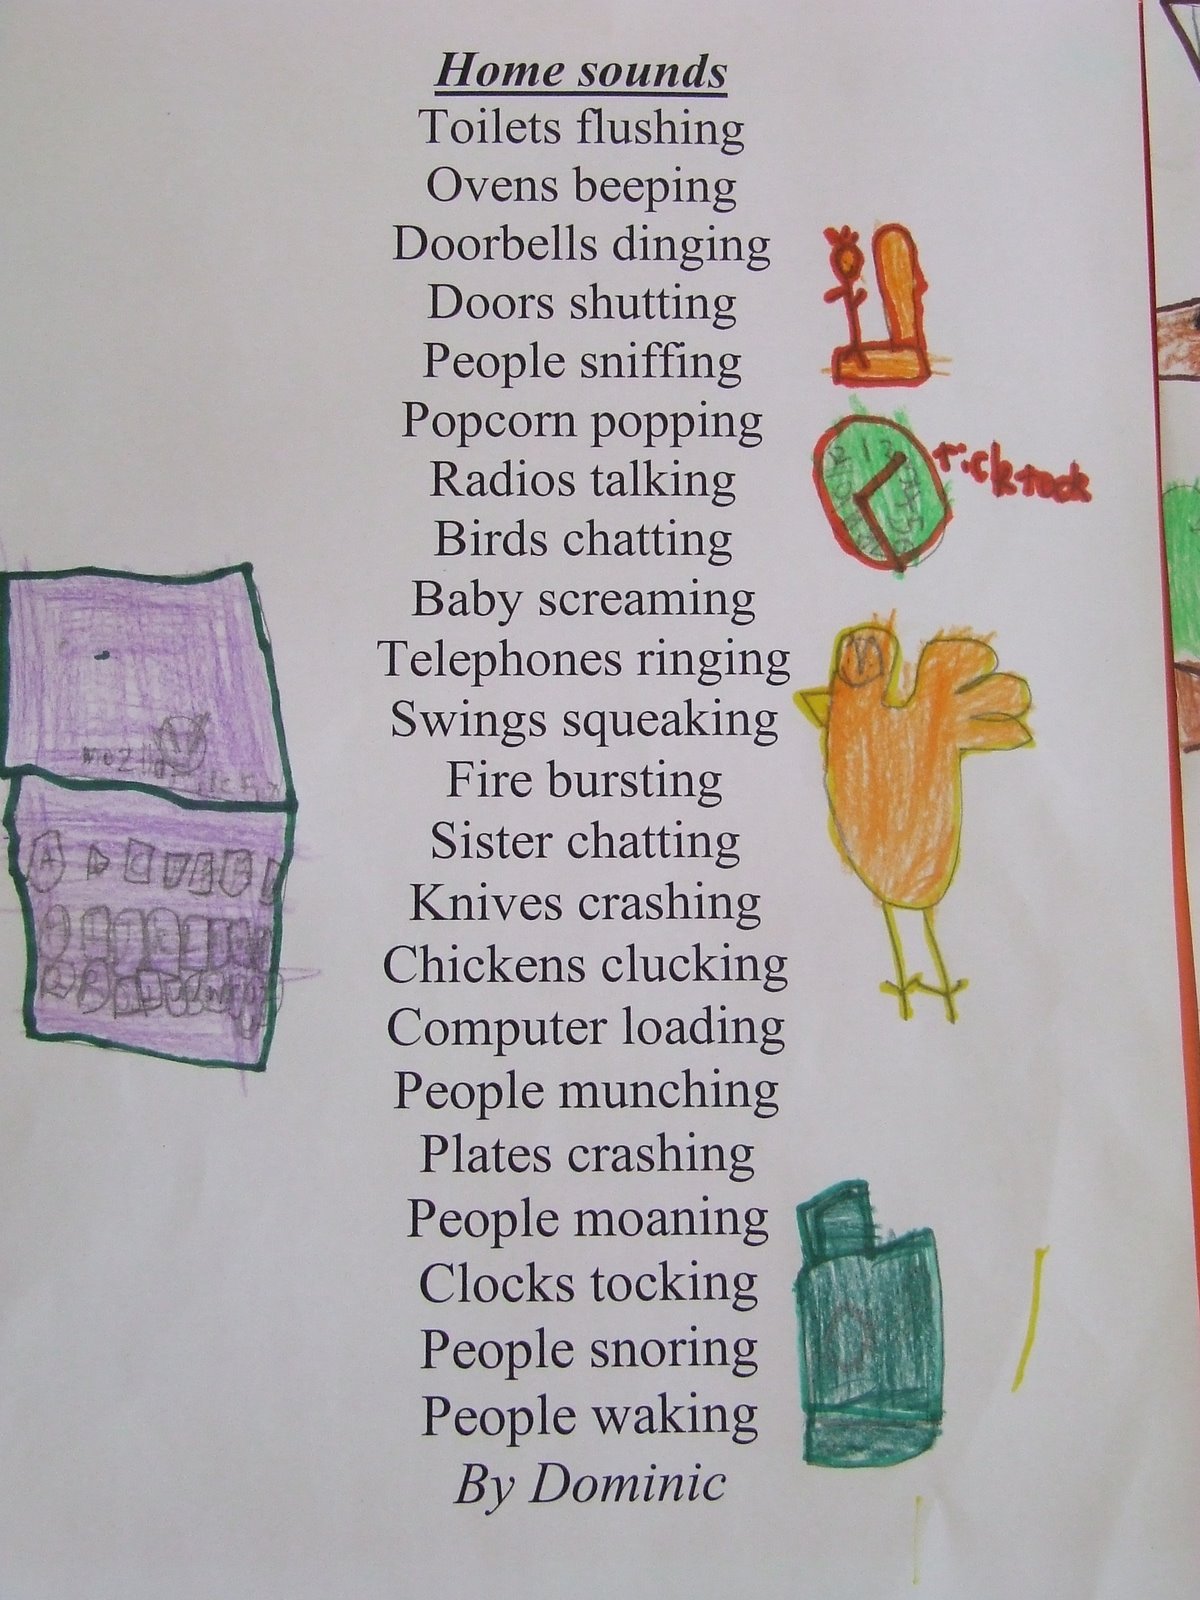 Home sounds
Toilets flushing
Ovens beeping
Doorbells dinging
Doors shutting
People sniffing
Popcorn popping
Radios talking
tick tock
Birds chatting
Baby screaming
Telephones ringing
Swings squeaking
Fire bursting
Sister chatting
Knives crashing
Chickens clucking
Computer loading
People munching
Plates crashing
People moaning
Clocks tocking
People snoring
People waking
By Dominic